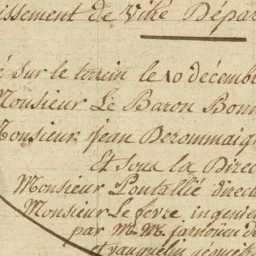 issement de Vitré Dépar
é sur le terrein le 10 décemb
Monsieur Le Baron Bonn
Monsieur Jean Derommaig
Et sous la Direc
Monsieur Poutallié direct
Monsieur Le fevre ingenie
par M. M.
et vauquelin géomèt